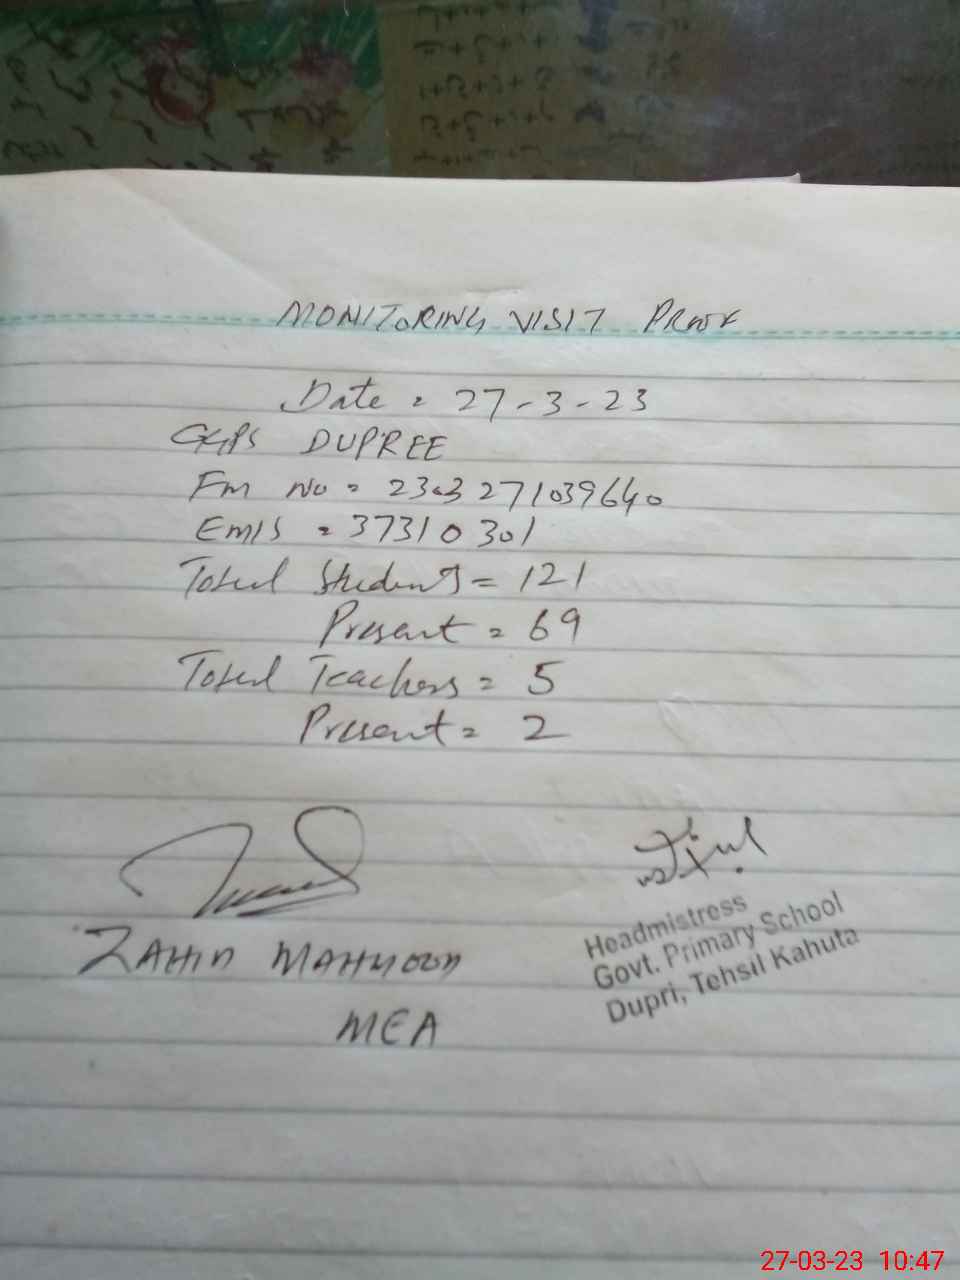 MONITORING VISIT PROOF
Date = 27-3-23
GGPS DUPREE
Fm No = 2303271039640
EMIS = 37310301
Total Students = 121
Present = 69
Total Teachers = 5
Present = 2
ZAHID MAHMOOD
MEA
Headmistress
Govt. Primary School
Dupri, Tehsil Kahuta
27-03-23 10:47